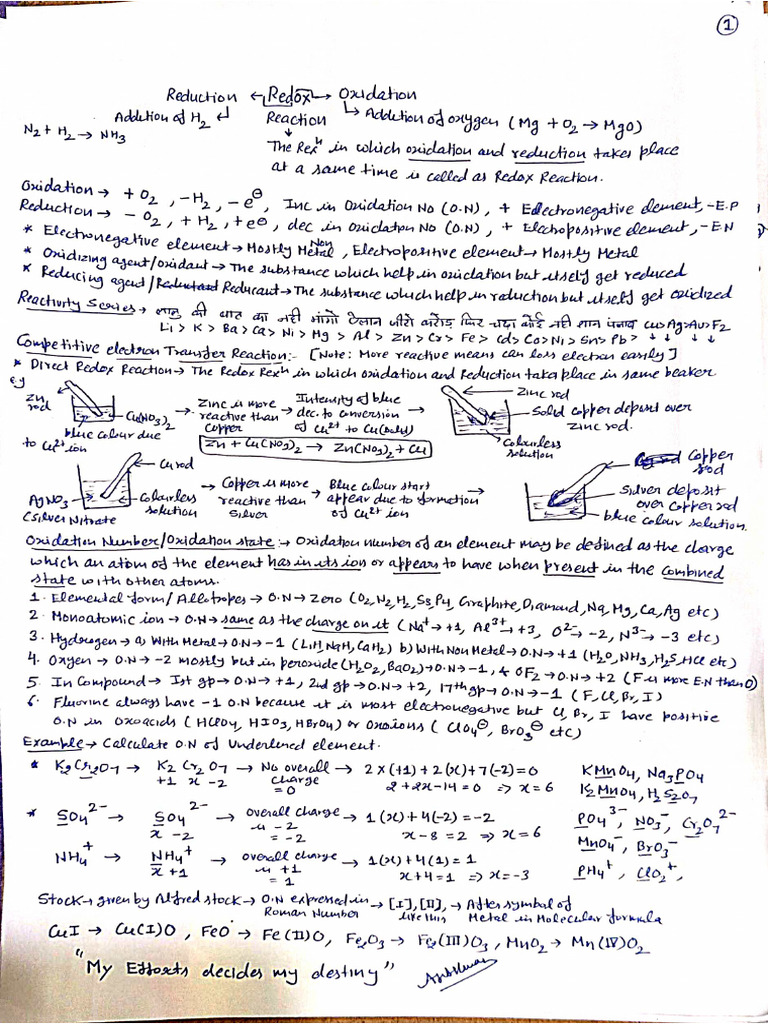 ①
Reduction ← Redox → Oxidation
Addetion of H2 ↲ Reaction ↳ Addetion of oxygen (Mg + O2 → MgO)
N2 + H2 → NH3
The Rexn in which oxidation and reduction takes place
at a same time is called as Redox Reaction.
Oxidation → + O2, - H2, - e⊖, Inc in Oxidation No (O.N), + Electronegative element, - E.P
Reduction → - O2, + H2, + e⊖, dec in oxidation No (O.N), + Electropositive element, - E.N
* Electronegative element → Mostly Non Metal, Electropositive element → Mostly Metal
* Oxidizing agent/oxidant → The substance which help in oxidation but itself get reduced
* Reducing agent/Reductant → The substance which help in reduction but itself get oxidized
Reactivity Series →
Li > K > Ba > Ca > Ni > Mg > Al > Zn > Cr > Fe > Cd > Co > Ni > Sn > Pb > ↓ ↓ ↓ ↓ Cu > Ag > Au > F2
Competitive electron Transfer Reaction:- [Note: More reactive means can loss electron easily]
* Direct Redox Reaction → The Redox Rexn in which oxidation and Reduction take place in same beaker
e.g
Zn rod
Cu(NO3)2
blue colour due to Cu2+ ion
→ Zinc is more reactive than Copper → Intensity of blue dec. to conversion of Cu2+ to Cu(solid) →
Zn + Cu(NO3)2 → Zn(NO3)2 + Cu
Zinc rod
Solid copper deposit over zinc rod.
Colourless solution
Cu rod
AgNO3 → (Silver Nitrate
Colourless solution
→ Copper is more reactive than Silver → Blue colour start appear due to formation of Cu2+ ion →
Copper rod
Silver deposit over copper rod
blue colour solution.
Oxidation Number/Oxidation state:→ Oxidation number of an element may be defined as the charge
which an atom of the element has in its ion or appears to have when present in the combined
state with other atoms.
1. Elemental form/Allotropes → O.N → Zero (O2, N2, H2, S8, P4, Graphite, Diamond, Na, Mg, Ca, Ag etc)
2. Monoatomic ion → O.N → same as the charge on it (Na+ → +1, Al3+ → +3, O2- → -2, N3- → -3 etc)
3. Hydrogen → a) With Metal → O.N → -1 (LiH, NaH, CaH2) b) With Non Metal → O.N → +1 (H2O, NH3, H2S, HCl etc)
4. Oxygen → O.N → -2 mostly but in peroxide (H2O2, BaO2) → O.N → -1, & OF2 → O.N → +2 (F is more E.N than O)
5. In Compound → Ist gp → O.N → +1, 2nd gp → O.N → +2, 17th gp → O.N → -1 (F, Cl, Br, I)
6. Fluorine always have -1 O.N because it is most electronegative but Cl, Br, I have positive
O.N in Oxoacids (HClO4, HIO3, HBrO4) or Oxoions (ClO4⊖, BrO3⊖ etc)
Example → Calculate O.N of Underlined element.
* K2Cr2O7 → K2 Cr2 O7 → No overall charge = 0 → 2×(+1) + 2(x) + 7(-2) = 0
+1 x -2 2 + 2x - 14 = 0 ⇒ x = 6
KMnO4, Na3PO4
K2MnO4, H2S2O7
* SO42- → SO42- → overall charge = -2 → 1(x) + 4(-2) = -2
x -2 x - 8 = 2 ⇒ x = 6
PO43-, NO3-, Cr2O72-
MnO4-, BrO3-
NH4+ → NH4+ → overall charge +1 = 1 → 1(x) + 4(1) = 1
x +1 x + 4 = 1 ⇒ x = -3
PH4+, ClO2+,
Stock → given by Alfred stock → O.N expressed in Roman Number → [I], [II], like this → After symbol of Metal in Molecular formula
CuI → Cu(I)O, FeO → Fe(II)O, Fe2O3 → Fe2(III)O3, MnO2 → Mn(IV)O2
"My Efforts decides my destiny"